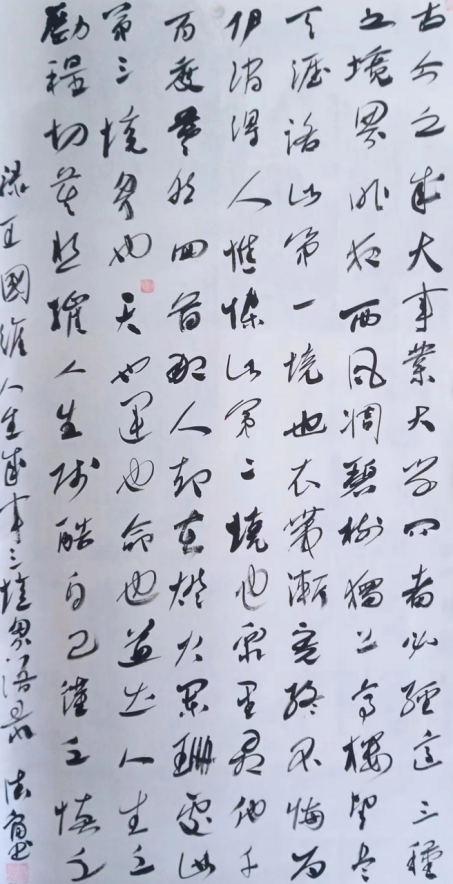 古今之成大事業大学问者必經這三種
之境界昨夜西風凋碧樹獨上高樓望尽
天涯路此第一境也衣帶漸寬終不悔为
伊消得人憔悴此第二境也衆里尋他千
百度驀然回首那人却在燈火闌珊處此
第三境界也天也運也命也道出人生之
程切莫人生残酷自己謹之慎之
錄王國維人生成事三境界語录